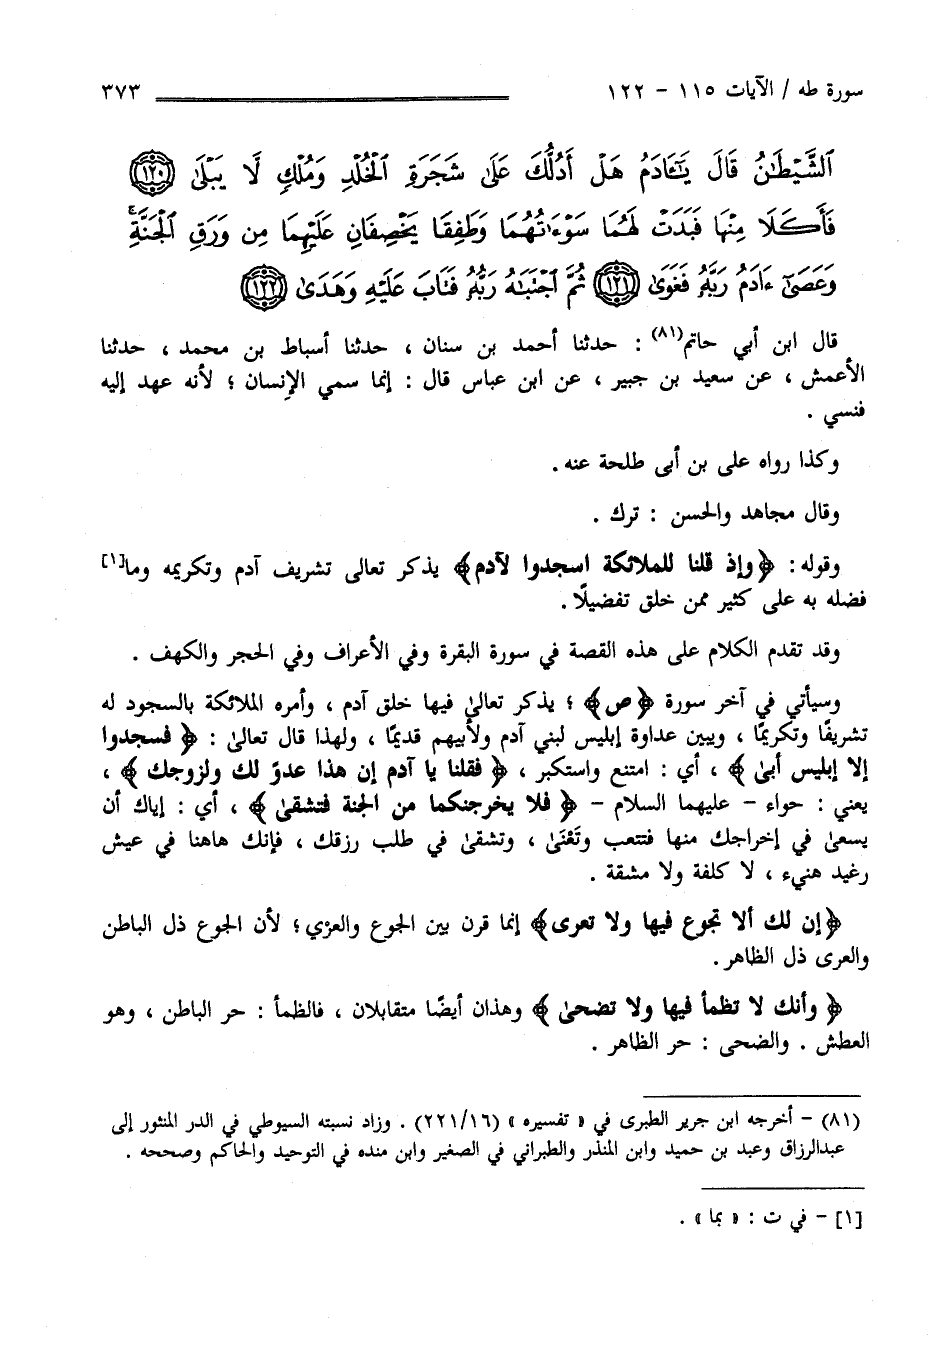 سورة طه / الآيات ١١٥ - ١٢٢ ٣٧٣
ٱلشَّيْطَـٰنُ قَالَ يَـٰٓـَٔادَمُ هَلْ أَدُلُّكَ عَلَىٰ شَجَرَةِ ٱلْخُلْدِ وَمُلْكٍ لَّا يَبْلَىٰ ﴿١٢٠﴾
فَأَكَلَا مِنْهَا فَبَدَتْ لَهُمَا سَوْءَٰتُهُمَا وَطَفِقَا يَخْصِفَانِ عَلَيْهِمَا مِن وَرَقِ ٱلْجَنَّةِ ۚ
وَعَصَىٰٓ ءَادَمُ رَبَّهُۥ فَغَوَىٰ ﴿١٢١﴾ ثُمَّ ٱجْتَبَـٰهُ رَبُّهُۥ فَتَابَ عَلَيْهِ وَهَدَىٰ ﴿١٢٢﴾
قال ابن أبي حاتم(٨١) : حدثنا أحمد بن سنان ، حدثنا أسباط بن محمد ، حدثنا
الأعمش ، عن سعيد بن جبير ، عن ابن عباس قال : إنما سمي الإنسان ؛ لأنه عهد إليه
فنسي .
وكذا رواه على بن أبى طلحة عنه .
وقال مجاهد والحسن : ترك .
وقوله : ﴿وإذ قلنا للملائكة اسجدوا لآدم﴾ يذكر تعالى تشريف آدم وتكريمه وما[١]
فضله به على كثير ممن خلق تفضيلًا .
وقد تقدم الكلام على هذه القصة في سورة البقرة وفي الأعراف وفي الحجر والكهف .
وسيأتي في آخر سورة ﴿ص﴾ ؛ يذكر تعالىٰ فيها خلق آدم ، وأمره الملائكة بالسجود له
تشريفًا وتكريمًا ، ويبين عداوة إبليس لبني آدم ولأبيهم قديمًا ، ولهذا قال تعالىٰ : ﴿ فسجدوا
إلا إبليس أبىٰ ﴾ ، أي : امتنع واستكبر ، ﴿ فقلنا يا آدم إن هذا عدوّ لك ولزوجك ﴾ ،
يعني : حواء - عليهما السلام - ﴿ فلا يخرجنكما من الجنة فتشقىٰ ﴾ ، أي : إياك أن
يسعىٰ في إخراجك منها فتتعب وتَعْنَىٰ ، وتشقىٰ في طلب رزقك ، فإنك هاهنا في عيش
رغيد هنيء ، لا كلفة ولا مشقة .
﴿إن لك ألا تجوع فيها ولا تعرى﴾ إنما قرن بين الجوع والعزي ؛ لأن الجوع ذل الباطن
والعرى ذل الظاهر .
﴿ وأنك لا تظمأ فيها ولا تضحىٰ ﴾ وهذان أيضًا متقابلان ، فالظمأ : حر الباطن ، وهو
العطش . والضحى : حر الظاهر .
(٨١) - أخرجه ابن جرير الطبرى في « تفسيره » (٢٢١/١٦) . وزاد نسبته السيوطي في الدر المنثور إلى
عبدالرزاق وعبد بن حميد وابن المنذر والطبراني في الصغير وابن منده في التوحيد والحاكم وصححه .
[١] - في ت : « بما » .